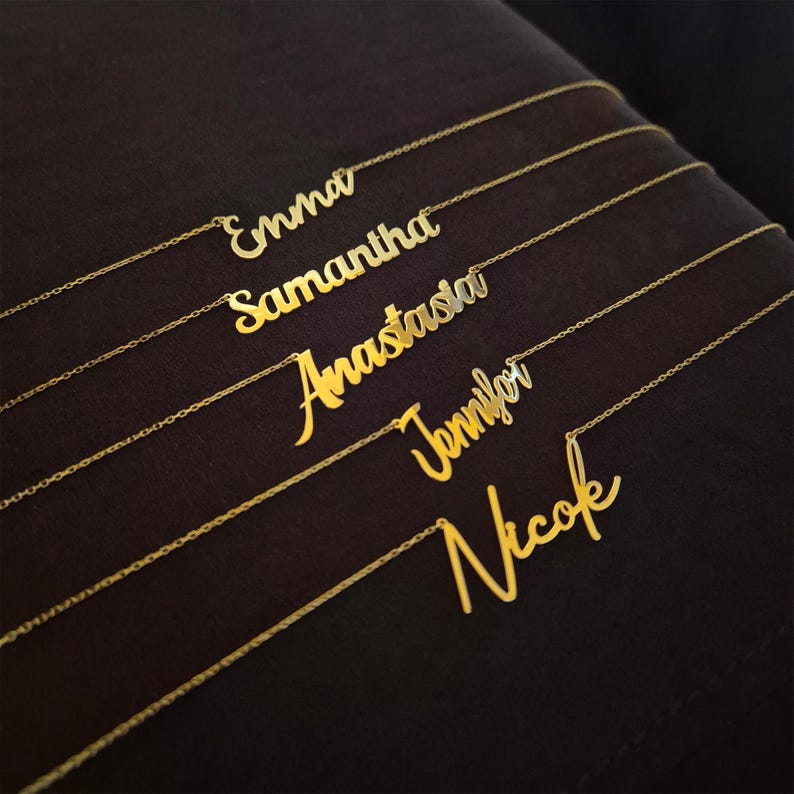 Emma
Samantha
Anastasia
Jennifer
Nicole